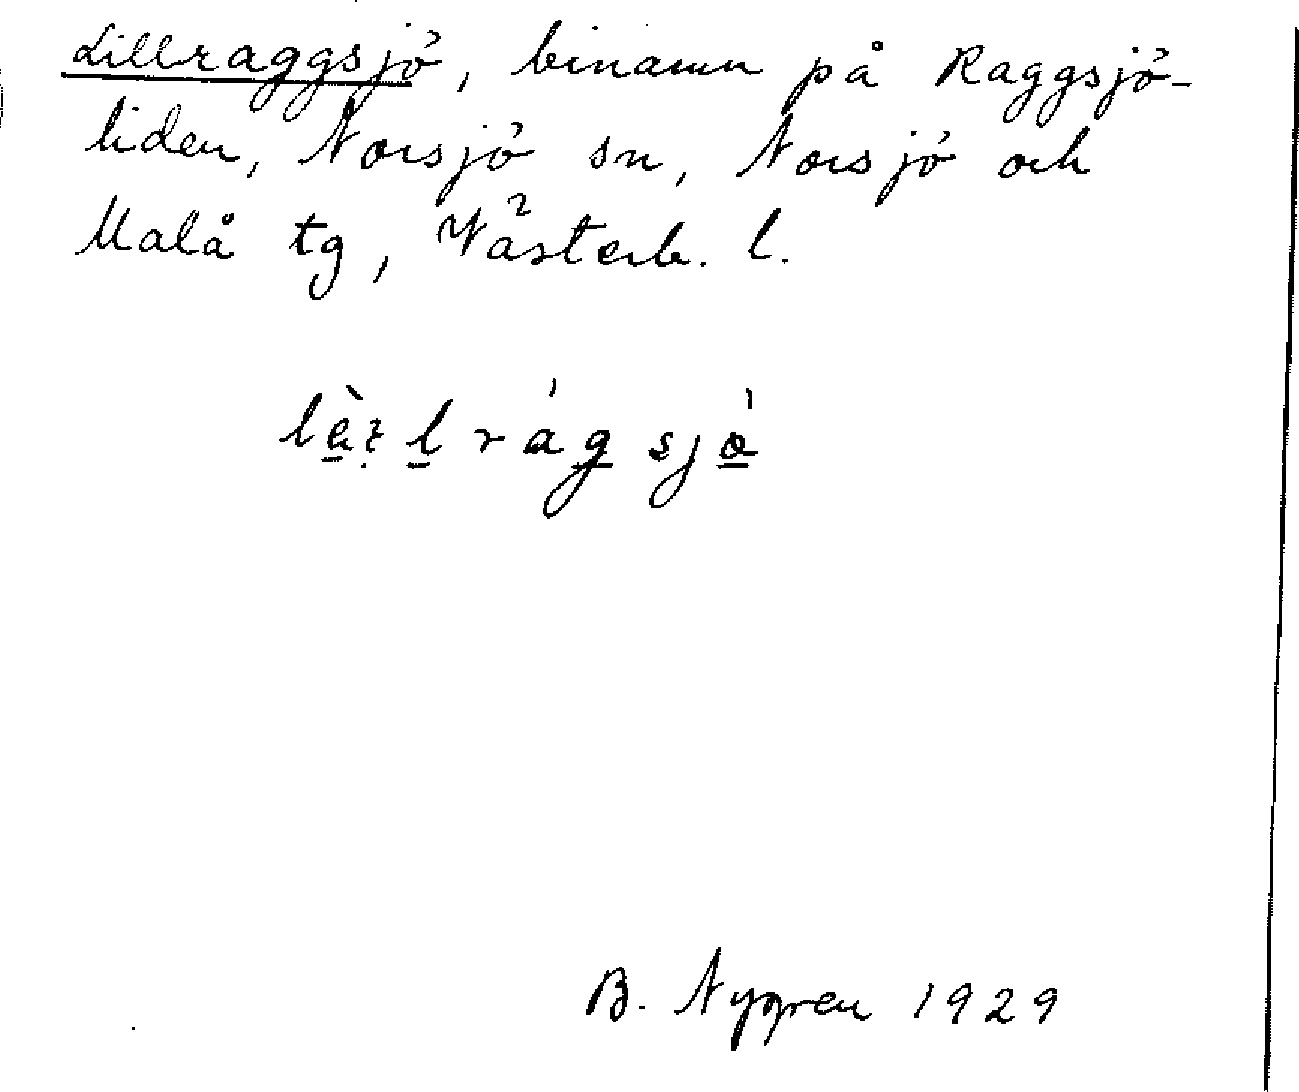 Lillraggsjö, binamn på Raggsjö-
liden, Norsjö sn, Norsjö och
Malå tg, Västerb. l.
B. Nygren 1929